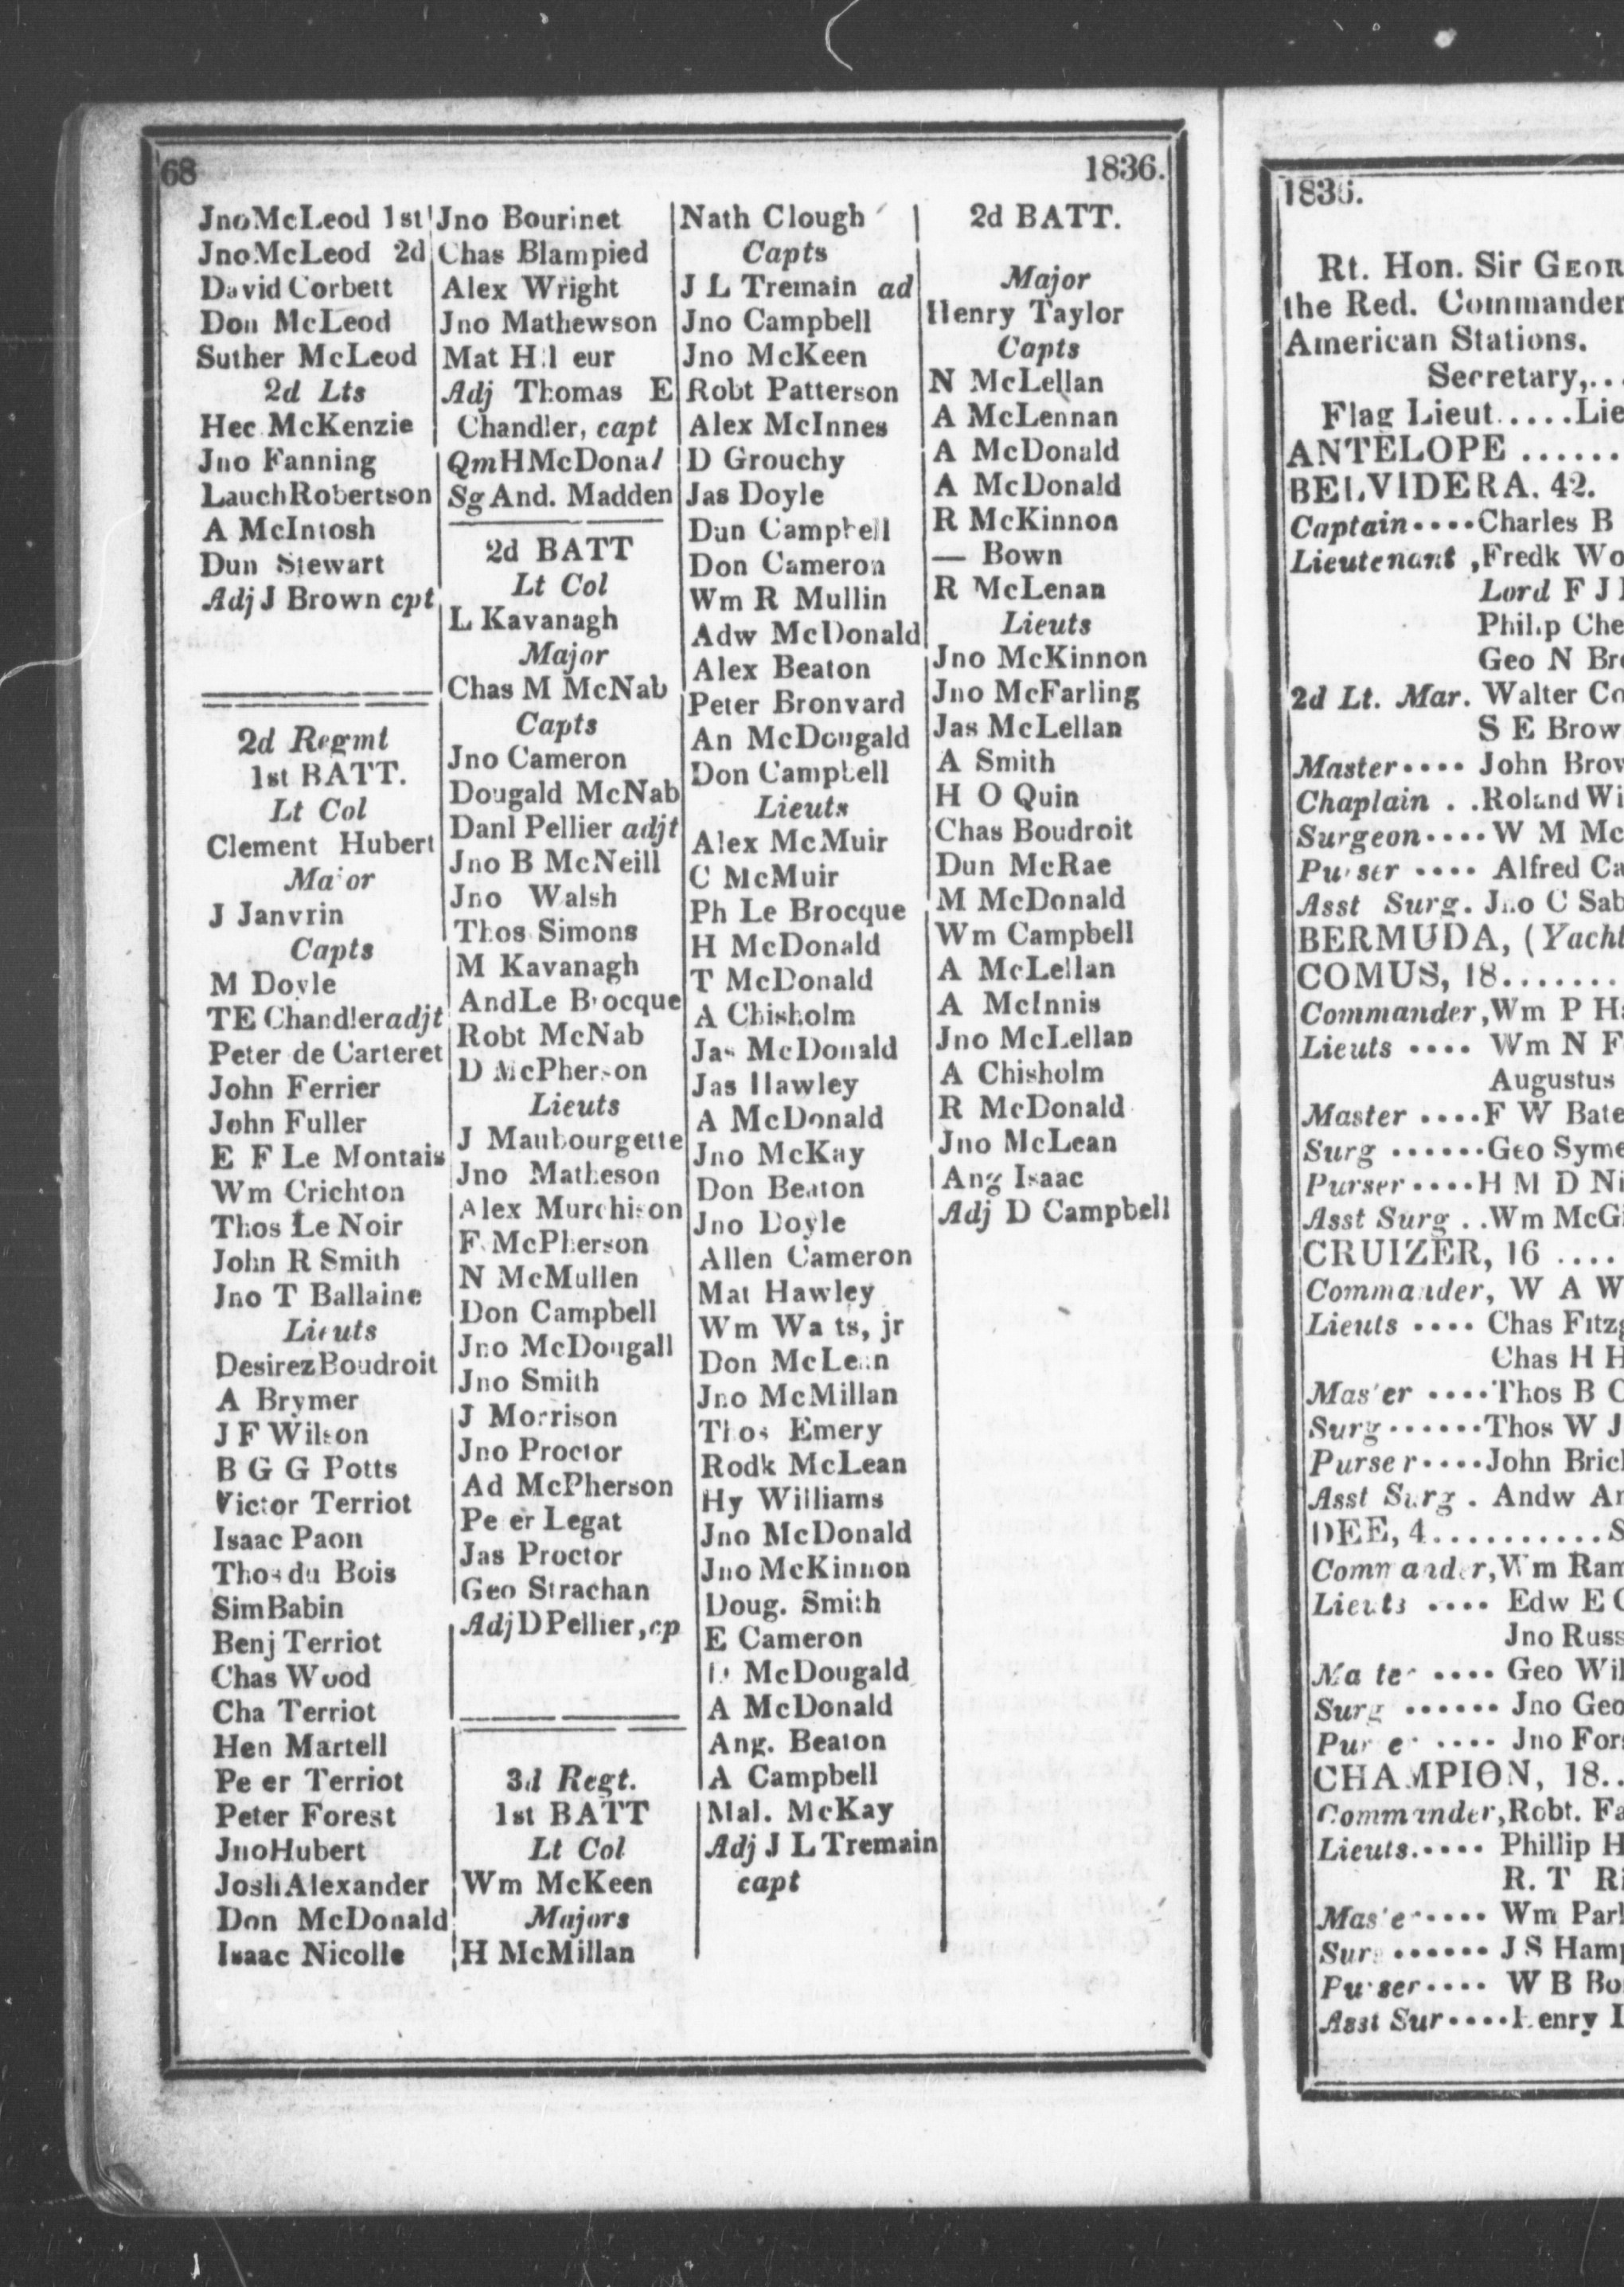 68
1836.
Jno McLeod 1st
Jno McLeod 2d
David Corbett
Don McLeod
Suther McLeod
2d Lts
Hec McKenzie
Jno Fanning
Lauch Robertson
A McIntosh
Dun Stewart
Adj J Brown cpt
2d Regmt
1st BATT.
Lt Col
Clement Hubert
Ma or
J Janvrin
Capts
M Doyle
T E Chandler adjt
Peter de Carteret
John Ferrier
John Fuller
E F Le Montais
Wm Crichton
Thos Le Noir
John R Smith
Jno T Ballaine
Lieuts
Desirez Boudroit
A Brymer
J F Wilson
B G G Potts
Victor Terriot
Isaac Paon
Thos du Bois
Sim Babin
Benj Terriot
Chas Wood
Cha Terriot
Hen Martell
Pe er Terriot
Peter Forest
Jno Hubert
Josh Alexander
Don McDonald
Isaac Nicolle
Jno Bourinet
Chas Blampied
Alex Wright
Jno Mathewson
Mat
Adj Thomas E
Chandler, capt
Qm H McDonal
Sg And. Madden
2d BATT
Lt Col
L Kavanagh
Major
Chas M McNab
Capts
Jno Cameron
Dougald McNab
Danl Pellier adjt
Jno B McNeill
Jno Walsh
Thos Simons
M Kavanagh
And Le Brocque
Robt McNab
D McPherson
Lieuts
J Maubourgette
Jno Matheson
Alex Murchison
F McPherson
N McMullen
Don Campbell
Jno McDougall
Jno Smith
J Morrison
Jno Proctor
Ad McPherson
Pe er Legat
Jas Proctor
Geo Strachan
Adj D Pellier, cp
3d Regt.
1st BATT
Lt Col
Wm McKeen
Majors
H McMillan
Nath Clough
Capts
J L Tremain ad
Jno Campbell
Jno McKeen
Robt Patterson
Alex McInnes
D Grouchy
Jas Doyle
Dun Campbell
Don Cameron
Wm R Mullin
Adw McDonald
Alex Beaton
Peter Bronvard
An McDougald
Don Campbell
Lieuts
Alex McMuir
C McMuir
Ph Le Brocque
H McDonald
T McDonald
A Chisholm
Jas McDonald
Jas Hawley
A McDonald
Jno McKay
Don Beaton
Jno Doyle
Allen Cameron
Mat Hawley
Wm Wa ts, jr
Don McLean
Jno McMillan
Thos Emery
Rodk McLean
Hy Williams
Jno McDonald
Jno McKinnon
Doug. Smith
E Cameron
McDougald
A McDonald
Ang. Beaton
A Campbell
Mal. McKay
Adj J L Tremain
capt
2d BATT.
Major
Henry Taylor
Capts
N McLellan
A McLennan
A McDonald
A McDonald
R McKinnon
— Bown
R McLenan
Lieuts
Jno McKinnon
Jno McFarling
Jas McLellan
A Smith
H O Quin
Chas Boudroit
Dun McRae
M McDonald
Wm Campbell
A McLellan
A McInnis
Jno McLellan
A Chisholm
R McDonald
Jno McLean
Ang Isaac
Adj D Campbell
1836.
Rt. Hon. Sir GEOR
the Red. Commander
American Stations.
Secretary,..
Flag Lieut.....Lie
ANTELOPE ......
BELVIDERA, 42.
Captain....Charles B
Lieutenant ,Fredk Wo
Lord F J
Philip Che
Geo N Bro
2d Lt. Mar. Walter Co
S E Brow
Master.... John Brow
Chaplain . .Roland Wi
Surgeon....W M Mc
Purser .... Alfred Ca
Asst Surg. Jno C Sab
BERMUDA, (Yacht
COMUS, 18.......
Commander, Wm P Ha
Lieuts .... Wm N F
Augustus
Master ....F W Bate
Surg ......Geo Syme
Purser....H M D Ni
Asst Surg . .Wm McGi
CRUIZER, 16 ....
Commander, W A W
Lieuts .... Chas Fitzg
Chas H H
Mas er ....Thos B C
Surg......Thos W J
Purser....John Bric
Asst Surg . Andw An
DEE, 4..........S
Commander, Wm Ram
Lieuts .... Edw E C
Jno Russ
Ma te .... Geo Wil
Surg ...... Jno Geo
Pur er .... Jno For
CHAMPION, 18..
Commander, Robt. Fa
Lieuts..... Phillip H
R. T Ri
Mas e .... Wm Parl
Surg ...... J S Hamp
Purser.... W B Bo
Asst Sur....Henry